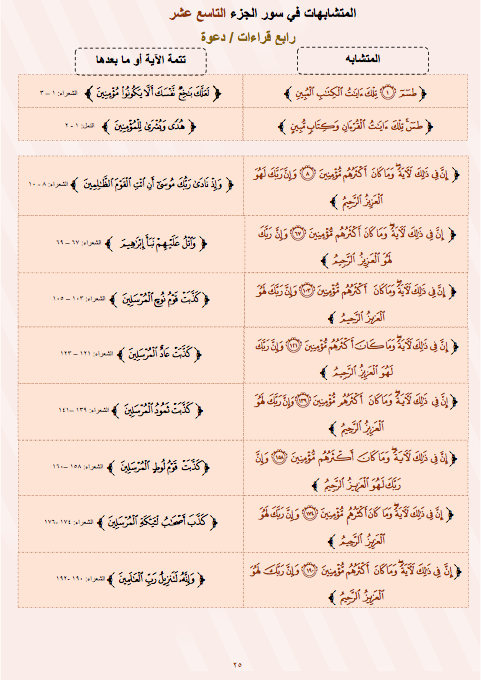 المتشابهات في سور الجزء التاسع عشر
رابع قراءات / دعوة
المتشابه
تتمة الآية أو ما بعدها
﴿ طسٓمٓ ۝١ تِلْكَ ءَايَٰتُ ٱلْكِتَٰبِ ٱلْمُبِينِ ﴾
﴿ لَعَلَّكَ بَٰخِعٌ نَّفْسَكَ أَلَّا يَكُونُوا۟ مُؤْمِنِينَ ﴾ الشعراء: ١ – ٣
﴿ طسٓ تِلْكَ ءَايَٰتُ ٱلْقُرْءَانِ وَكِتَابٍ مُّبِينٍ ﴾
﴿ هُدًى وَبُشْرَىٰ لِلْمُؤْمِنِينَ ﴾ النمل: ١ - ٢
﴿ إِنَّ فِى ذَٰلِكَ لَءَايَةً وَمَا كَانَ أَكْثَرُهُم مُّؤْمِنِينَ ۝٨ وَإِنَّ رَبَّكَ لَهُوَ
ٱلْعَزِيزُ ٱلرَّحِيمُ ﴾
﴿ وَإِذْ نَادَىٰ رَبُّكَ مُوسَىٰٓ أَنِ ٱئْتِ ٱلْقَوْمَ ٱلظَّٰلِمِينَ ﴾ الشعراء: ٨ - ١٠
﴿ إِنَّ فِى ذَٰلِكَ لَءَايَةً وَمَا كَانَ أَكْثَرُهُم مُّؤْمِنِينَ ۝٦٧ وَإِنَّ رَبَّكَ
لَهُوَ ٱلْعَزِيزُ ٱلرَّحِيمُ ﴾
﴿ وَٱتْلُ عَلَيْهِمْ نَبَأَ إِبْرَٰهِيمَ ﴾ الشعراء: ٦٧ – ٦٩
﴿ إِنَّ فِى ذَٰلِكَ لَءَايَةً وَمَا كَانَ أَكْثَرُهُم مُّؤْمِنِينَ ۝١٠٣ وَإِنَّ رَبَّكَ لَهُوَ
ٱلْعَزِيزُ ٱلرَّحِيمُ ﴾
﴿ كَذَّبَتْ قَوْمُ نُوحٍ ٱلْمُرْسَلِينَ ﴾ الشعراء: ١٠٣ – ١٠٥
﴿ إِنَّ فِى ذَٰلِكَ لَءَايَةً وَمَا كَانَ أَكْثَرُهُم مُّؤْمِنِينَ ۝١٢١ وَإِنَّ رَبَّكَ
لَهُوَ ٱلْعَزِيزُ ٱلرَّحِيمُ ﴾
﴿ كَذَّبَتْ عَادٌ ٱلْمُرْسَلِينَ ﴾ الشعراء: ١٢١ – ١٢٣
﴿ إِنَّ فِى ذَٰلِكَ لَءَايَةً وَمَا كَانَ أَكْثَرُهُم مُّؤْمِنِينَ ۝١٣٩ وَإِنَّ رَبَّكَ لَهُوَ
ٱلْعَزِيزُ ٱلرَّحِيمُ ﴾
﴿ كَذَّبَتْ ثَمُودُ ٱلْمُرْسَلِينَ ﴾ الشعراء: ١٣٩ – ١٤١
﴿ إِنَّ فِى ذَٰلِكَ لَءَايَةً وَمَا كَانَ أَكْثَرُهُم مُّؤْمِنِينَ ۝١٥٨ وَإِنَّ
رَبَّكَ لَهُوَ ٱلْعَزِيزُ ٱلرَّحِيمُ ﴾
﴿ كَذَّبَتْ قَوْمُ لُوطٍ ٱلْمُرْسَلِينَ ﴾ الشعراء: ١٥٨ – ١٦٠
﴿ إِنَّ فِى ذَٰلِكَ لَءَايَةً وَمَا كَانَ أَكْثَرُهُم مُّؤْمِنِينَ ۝١٧٤ وَإِنَّ رَبَّكَ لَهُوَ
ٱلْعَزِيزُ ٱلرَّحِيمُ ﴾
﴿ كَذَّبَ أَصْحَٰبُ لْـَٔيْكَةِ ٱلْمُرْسَلِينَ ﴾ الشعراء: ١٧٤ – ١٧٦
﴿ إِنَّ فِى ذَٰلِكَ لَءَايَةً وَمَا كَانَ أَكْثَرُهُم مُّؤْمِنِينَ ۝١٩٠ وَإِنَّ رَبَّكَ لَهُوَ
ٱلْعَزِيزُ ٱلرَّحِيمُ ﴾
﴿ وَإِنَّهُۥ لَتَنزِيلُ رَبِّ ٱلْعَٰلَمِينَ ﴾ الشعراء: ١٩٠ - ١٩٢
٢٥